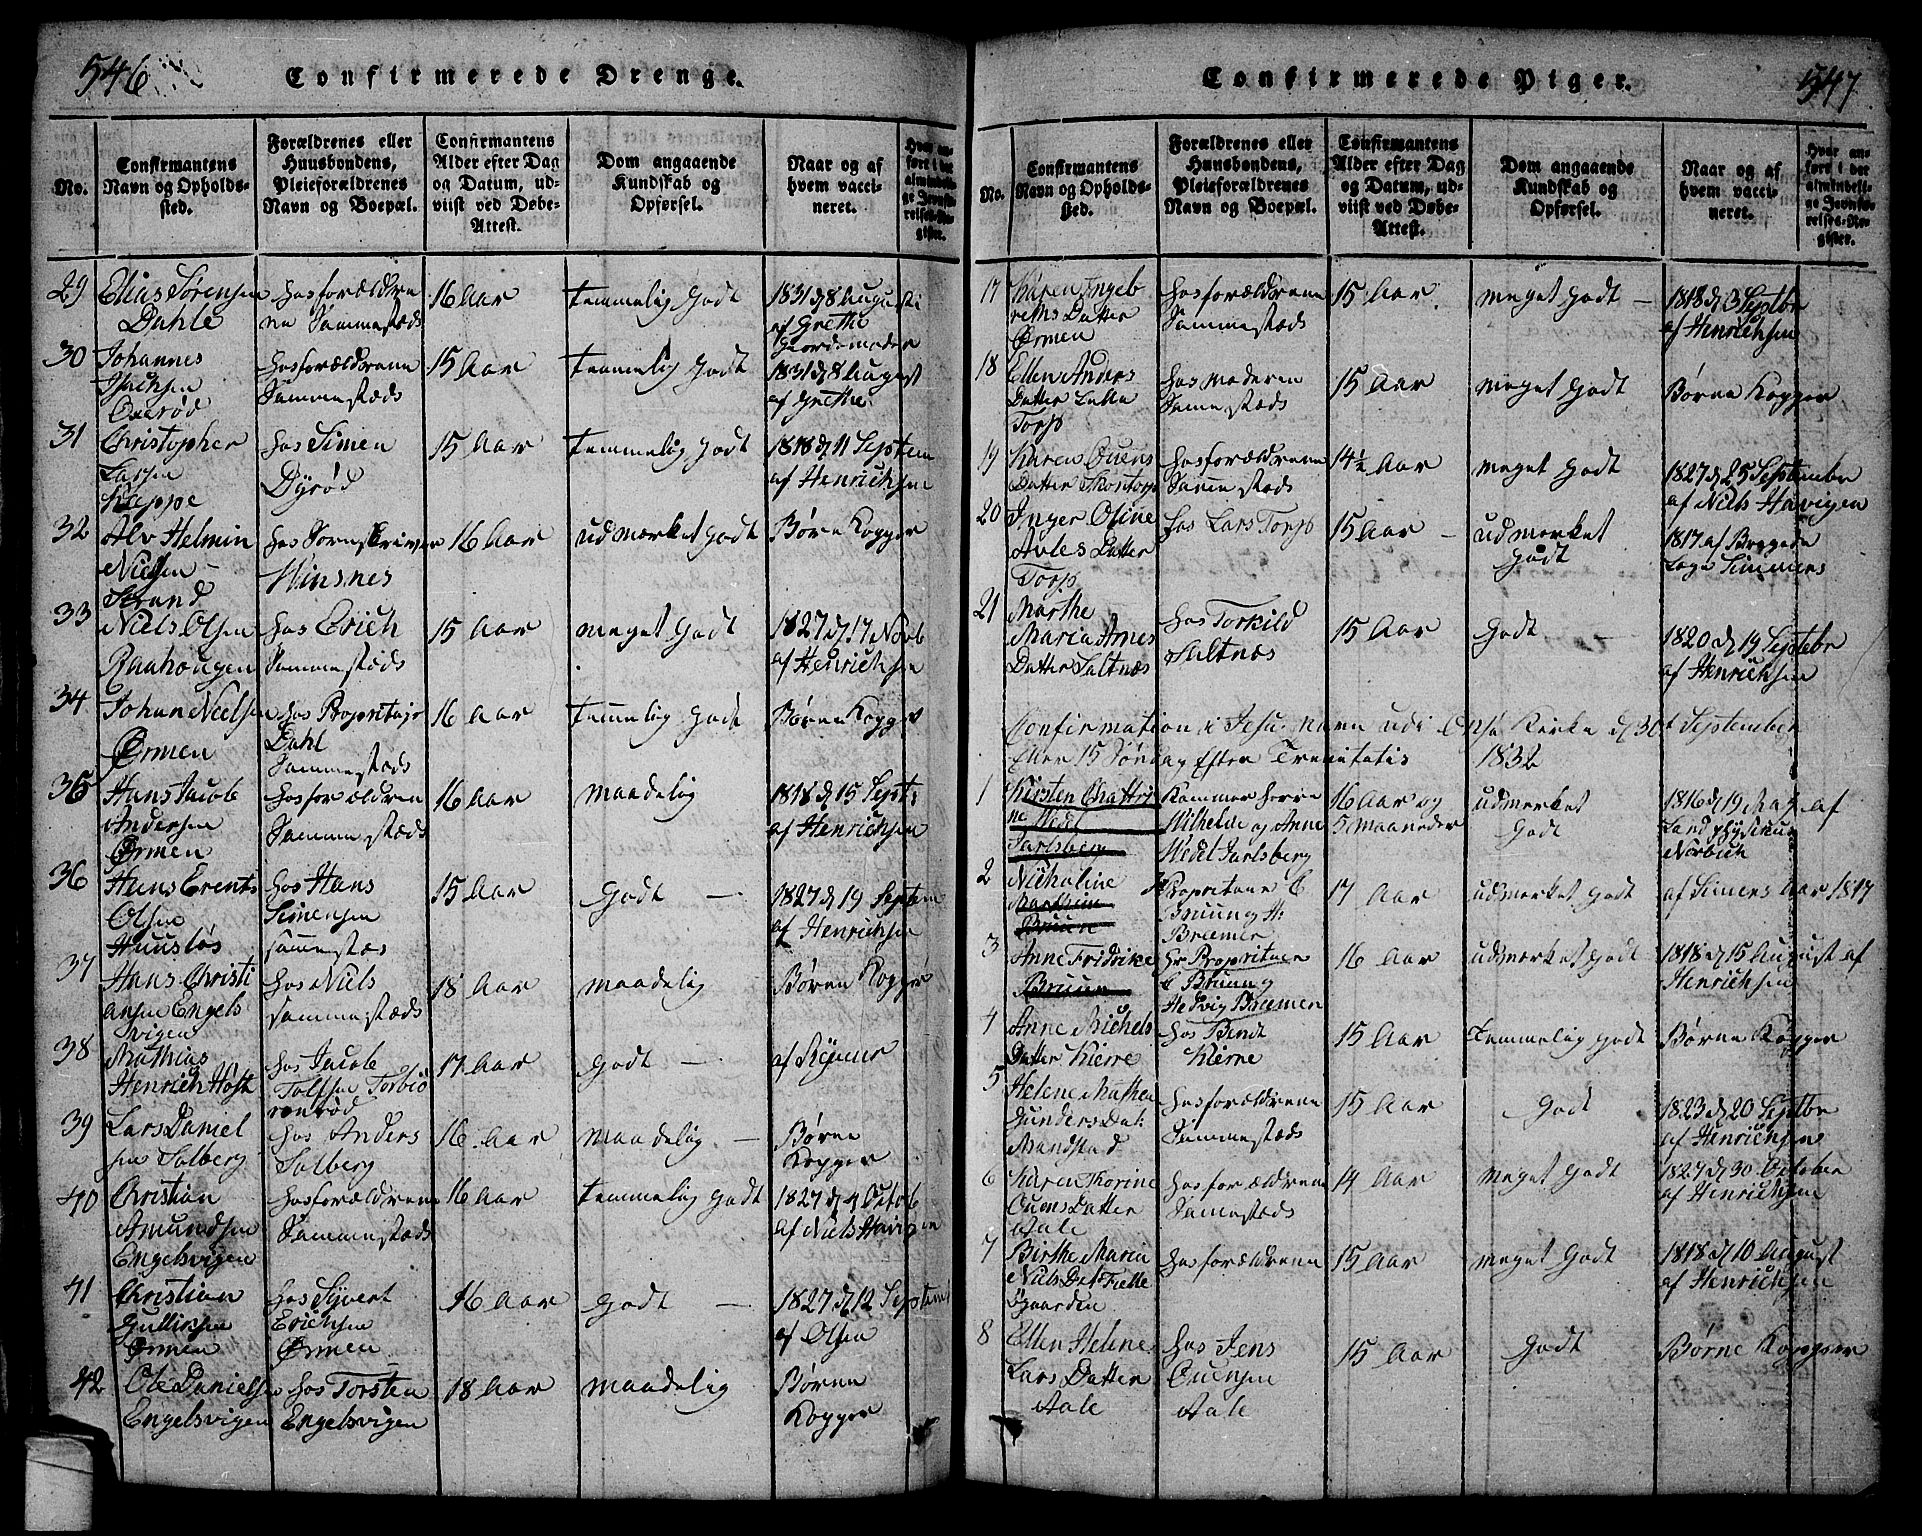 546
Confirmerede Drenge.
No.
Confirmantens
Navn og Opholds-
sted.
Forældrenes eller
Huusbondens,
Pleieforældrenes
Navn og Boepæl.
Confirmantens
Alder efter Dag
og Datum, ud-
viist ved Døbe-
Attest.
Dom angaaende
Kundskab og
Opførsel.
Naar og af
hvem vacci-
neret.
Hvor an-
ført i det
almindeli-
ge Jevnfø-
relses-Re-
gister.
29
Elias Sørensen
Dahle
hos forældre
ne Sammestæds
16 Aar
temmelig Godt
1831 d 8 Augusti
af Grethe
Giordemoder
30
Johannes
Isachsen
Oxerød
hos forældrene
Sammestæds
15 Aar
temmelig Godt
1831 d 8 August
af Grethe
31
Christopher
Larsen
Kieppe
hos Simen
Dyrød
15 Aar
temmelig Godt
1818 d 11 Septem
af Henrichsen
32
Alv Helmin
Nielsen
Strand
hos Sornskriver
Hinsnes
16 Aar
udmærket Godt
Børne Kopper
33
Niels Olsen
Raahougen
hos Erich
Sammestæds
15 Aar
meget Godt
1827 d 17 Novb
af Henrichsen
34
Johan Nielsen
Ørmen
hos Propritajr
Dahl
Sammestæds
16 Aar
temmelig Godt
Børne Kopper
35
Hans Jacob
Andersen
Ørmen
hos forældren
Sammestæds
16 Aar
maadelig
1818 d 15 Sept:
af Henrichsen
36
Hans Erents
Olsen
Huusløs
hos Hans
Simensen
sammestæs
15 Aar
Godt —
1827 d 19 Septem
af Henrichsen
37
Hans Christi
ansen Engels
vigen
hos Niels
sammestæds
18 Aar
maadelig
Børne Kopper
38
Mathias
Henrich Høst
hos Jacob
Tolfsen Torbiø
rnrød
17 Aar
Godt —
39
Lars Daniel
sen Solberg
hos Anders
Solberg
16 Aar
maadelig —
Børne
Kopper
40
Christian
Amundsen
Engelsvigen
hos forældrene
Sammestæds
16 Aar
temmelig Godt
1827 d 4 Octob
af Niels Havigen
41
Christian
Gulliksen
Ørmen
hos Syvert
Erichsen
Ørmen
16 Aar
Godt —
1827 d 12 Septem
af Olsen
42
Ole Danielsen
Engelsvigen
hos Torsten
Engelsvigen
18 Aar
maadelig
Børne
Kopper
547
Confirmerede Piger.
No.
Confirmantens
Navn og Opholds-
sted.
Forældrenes eller
Huusbondens,
Pleieforældrenes
Navn og Boepæl.
Confirmantens
Alder efter Dag
og Datum, ud-
viist ved Døbe-
Attest.
Dom angaaende
Kundskab og
Opførsel.
Naar og af
hvem vacci-
neret.
Hvor an-
ført i det
almindeli-
ge Jevnfø-
relses-Re-
gister.
17
Karen Ingeb
reths Datter
Ørmen
hos forældrene
Sammestæds
15 Aar
meget Godt —
1818 d 3 Septbr
af Henrichsen
18
Ellen Anders
Datter Lille
Torp
hos moderen
Samestæds
15 Aar
meget Godt
Børne Kopper
19
Karen Ouens
Datter Thontorp
hos forældrene
Samestæds
14½ Aar
meget Godt
1827 d 25 Septembr
af Niels Havigen
20
Inger Oline
Avles Datter
Torp
hos Lars Torp
15 Aar —
udmerket
Godt
1817 af
Simmers
21
Marthe
Maria Arnes
Datter Saltnæs
hos Torkild
Saltnæs
15 Aar
Godt —
1820 d 19 Septebr
af Henrichsen
Confirmation i Jesu navn udi Onsø Kirke d 30t September
Eller 15 Søndag Efter Trenitatis 1832
1
Kirsten Cathri
ne Wedel
Jarlsberg
Kammer herre
Wilhelde og Anne
Wedel Jarlsberg
16 Aar og
5 maaneder
udmerket
Godt
1816 d 19 Maj af
Land physikus
2
Nicholine
Bruun
Propritaire C
Bruun og H:
Breemer
17 Aar
udmerket Godt
af Simers Aar 1817
3
Anne Fridrike
Bruun
hr Propritaer
C Bruun og
Hedvig Breemen
16 Aar
udmærket Godt
1818 d 15 August af
Henrichsen
4
Anne Michels
Datter Kierre
hos Bendt
Kierre
15 Aar
Temmelig Godt
Børne Kopper
5
Helene Mathea
Gunders Dat:
Mandstad
hos forældrene
Sammestæds
15 Aar
Godt
1823 d 20 Septbr
af Henrichsen
6
Karen Thorine
Ouens Datter
Aale
hos forældrene
Sammestæds
14 Aar
meget Godt
1827 d 30 October
af Henrichsen
7
Birthe Maria
Niels Dat: Fielle
Gaarden
hos forældrene
15 Aar
meget Godt
1818 d 10 August
af Henrichsen
8
Ellen Helene
Lars Datter
Aale
hos Jens
Ouensen
Aale
15 Aar
Godt
Børne Kopper